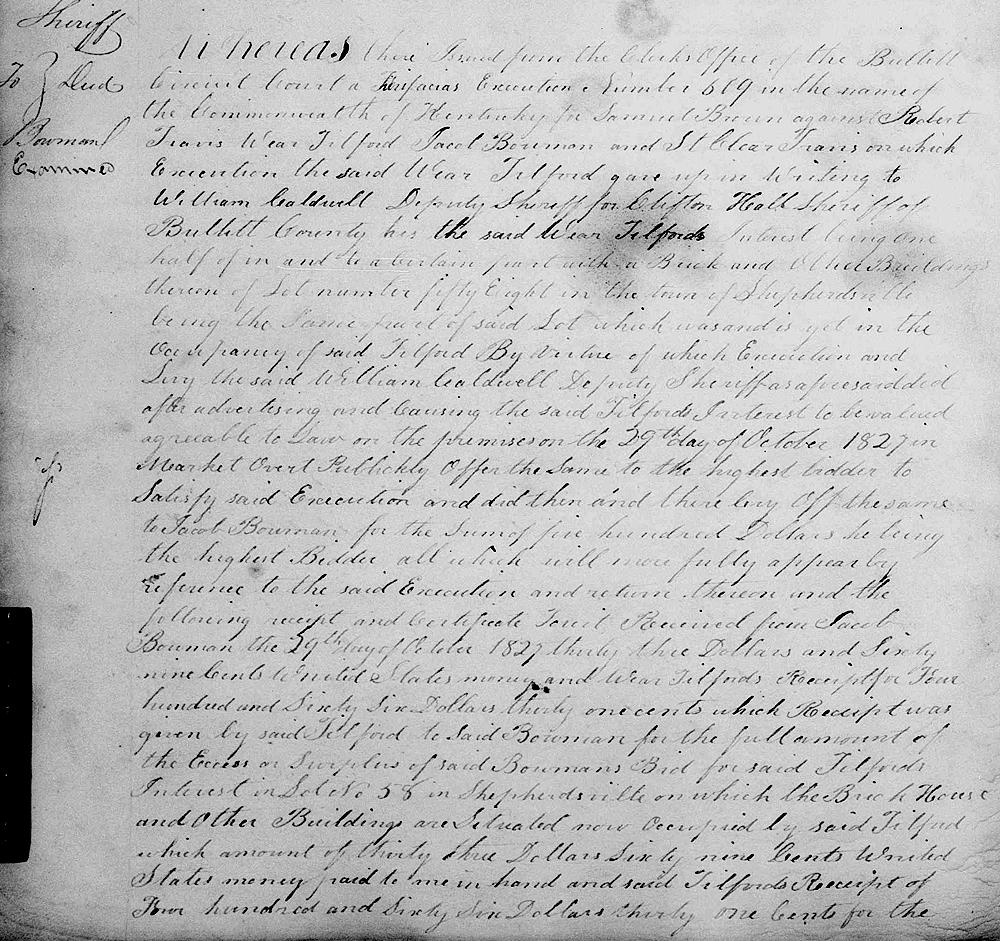 Sheriff
To } Deed
Bowman
Examined
Whereas there Issued from the Clerks Office of the Bullitt
Circuit Court a Firifacias Execution Number 619 in the name of
the Commonwealth of Kentucky for Samuel Brown against Robert
Travis Wear Tilford Jacob Bowman and St Clear Travis on which
Execution the said Wear Tilford gave up in Writing to
William Caldwell Deputy Sheriff for Clifton Hall Sheriff of
Bullitt County his the said Wear Tilfords Interest being One
half of in and to a Certain part with a Brick and Other Buildings
thereon of Lot number fifty Eight in the town of Shepherdsville
being the Same part of said Lot which was and is yet in the
Occupancy of said Tilford By Virtue of which Execution and
Levy the said William Caldwell Deputy Sheriff as aforesaid did
after advertising and Causing the said Tilfords Interest to be valued
agreeable to Law on the premises on the 29th day of October 1827 in
Market Overt Publickly Offer the Same to the highest bidder to
Satisfy said Execution and did then and there Cry Off the same
to Jacob Bowman for the Sum of five hundred Dollars he being
the highest Bidder all which will more fully appear by
reference to the said Execution and return thereon and the
following receipt and Certificate Towit Received from Jacob
Bowman the 29th day of October 1827 thirty three Dollars and Sixty
nine Cents United States money and Wear Tilfords Receipt for Four
hundred and Sixty Six Dollars thirty one cents which Receipt was
given by said Tilford to Said Bowman for the full amount of
the Excess or Surplus of said Bowmans Bid for said Tilfords
Interest in Lot No 58 in Shepherdsville on which the Brick House
and Other Building are Situated now Occupied by said Tilford
which amount of thirty three Dollars Sixty nine Cents United
States money paid to me in hand and said Tilfords Receipt of
Four hundred and Sixty Six Dollars thirty one Cents for the